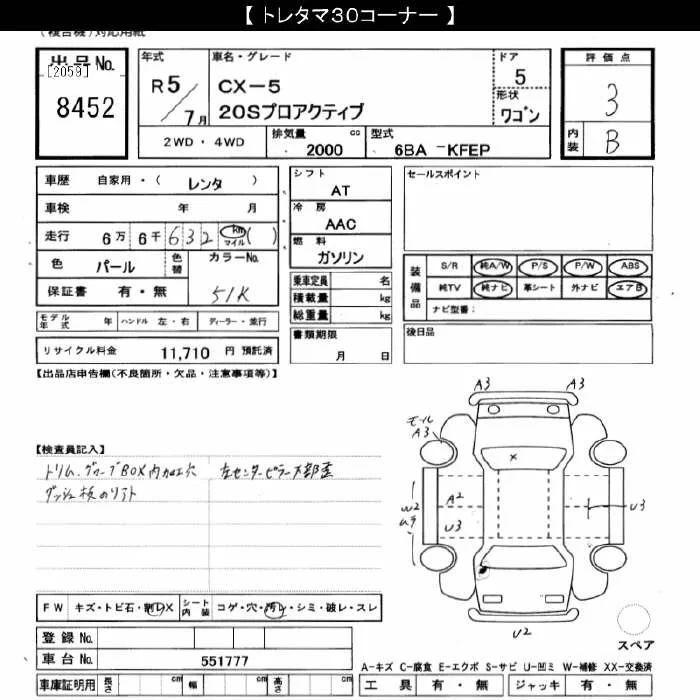 【 トレタマ30コーナー 】
(複合機)対応用紙
出品No.
[2059]
8452
年式
R5/7月
車名・グレード
CX-5
20Sプロアクティブ
ドア
5
形状
ワゴン
評価点
3
内装
B
2WD・4WD
排気量 cc
2000
型式
6BA -KFEP
車歴 自家用・( レンタ )
車検 年 月
走行 6万 6千 632 km マイル ( )
色 パール 色替 カラーNo.
51K
保証書 有・無
モデル年式 年 ハンドル 左・右 ディーラー・並行
リサイクル料金 11,710 円 預託済
シフト
AT
冷房
AAC
燃料
ガソリン
乗車定員 名
積載量 kg
総重量 kg
書類期限
月 日
セールスポイント
装備品
S/R 純A/W P/S P/W ABS
純TV 純ナビ 革シート 外ナビ エアB
ナビ型番:
後日品
【出品店申告欄(不良箇所・欠品・注意事項等)】
【検査員記入】
トリム、グローブBOX内加工穴 左センターピラー下部歪
ダッシュ板のリフト
A3 A3
モール
A3
×
W2
ムラ
A2
U3
U3
U2
スペア
FW キズ・トビ石・割レX シート内装 コゲ・穴・汚レ・シミ・破レ・スレ
登録No.
車台No. 551777
車庫証明用 長さ cm 幅 cm 高さ cm
A-キズ C-腐食 E-エクボ S-サビ U-凹ミ W-補修 XX-交換済
工具 有・無 ジャッキ 有・無